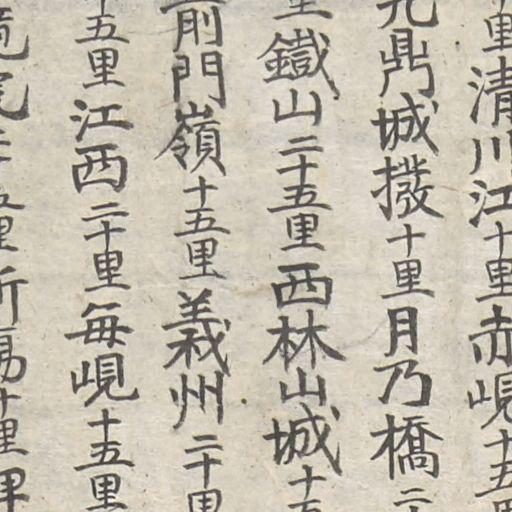 十里清川江十里赤峴十五里
元鼎城撥十里月乃橋二
里鐵山二十五里西林山城十五
前門嶺十五里義州二十里
十五里江西二十里每峴十五里
五里所易十里